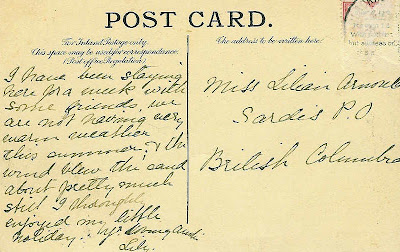 POST CARD.
For Inland Postage only.
This space may be used for correspondence
(Post office Regulation).
I have been staying
here for a week with
some friends, we
are not having very
warm weather
this summer; & the
wind blew the sand
about pretty much
still I thoroughly
enjoyed my little
holiday.
Lily.
The address to be written here.
Miss Lilian
Sardis P.O
British Columbia